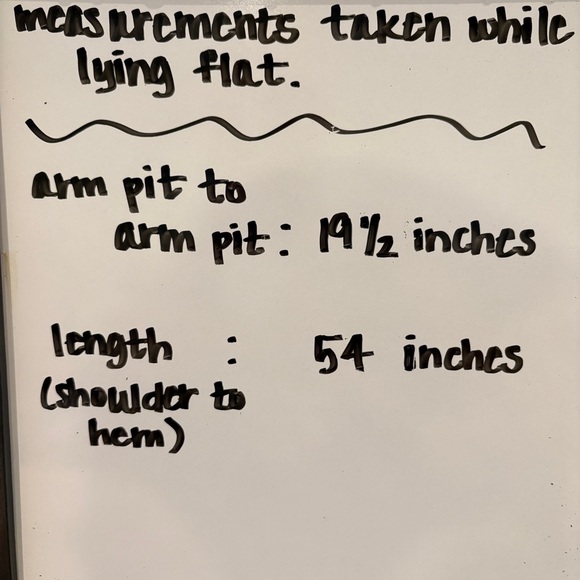 measurements taken while
lying flat.
arm pit to
arm pit : 19 1/2 inches
length : 54 inches
(shoulder to
hem)